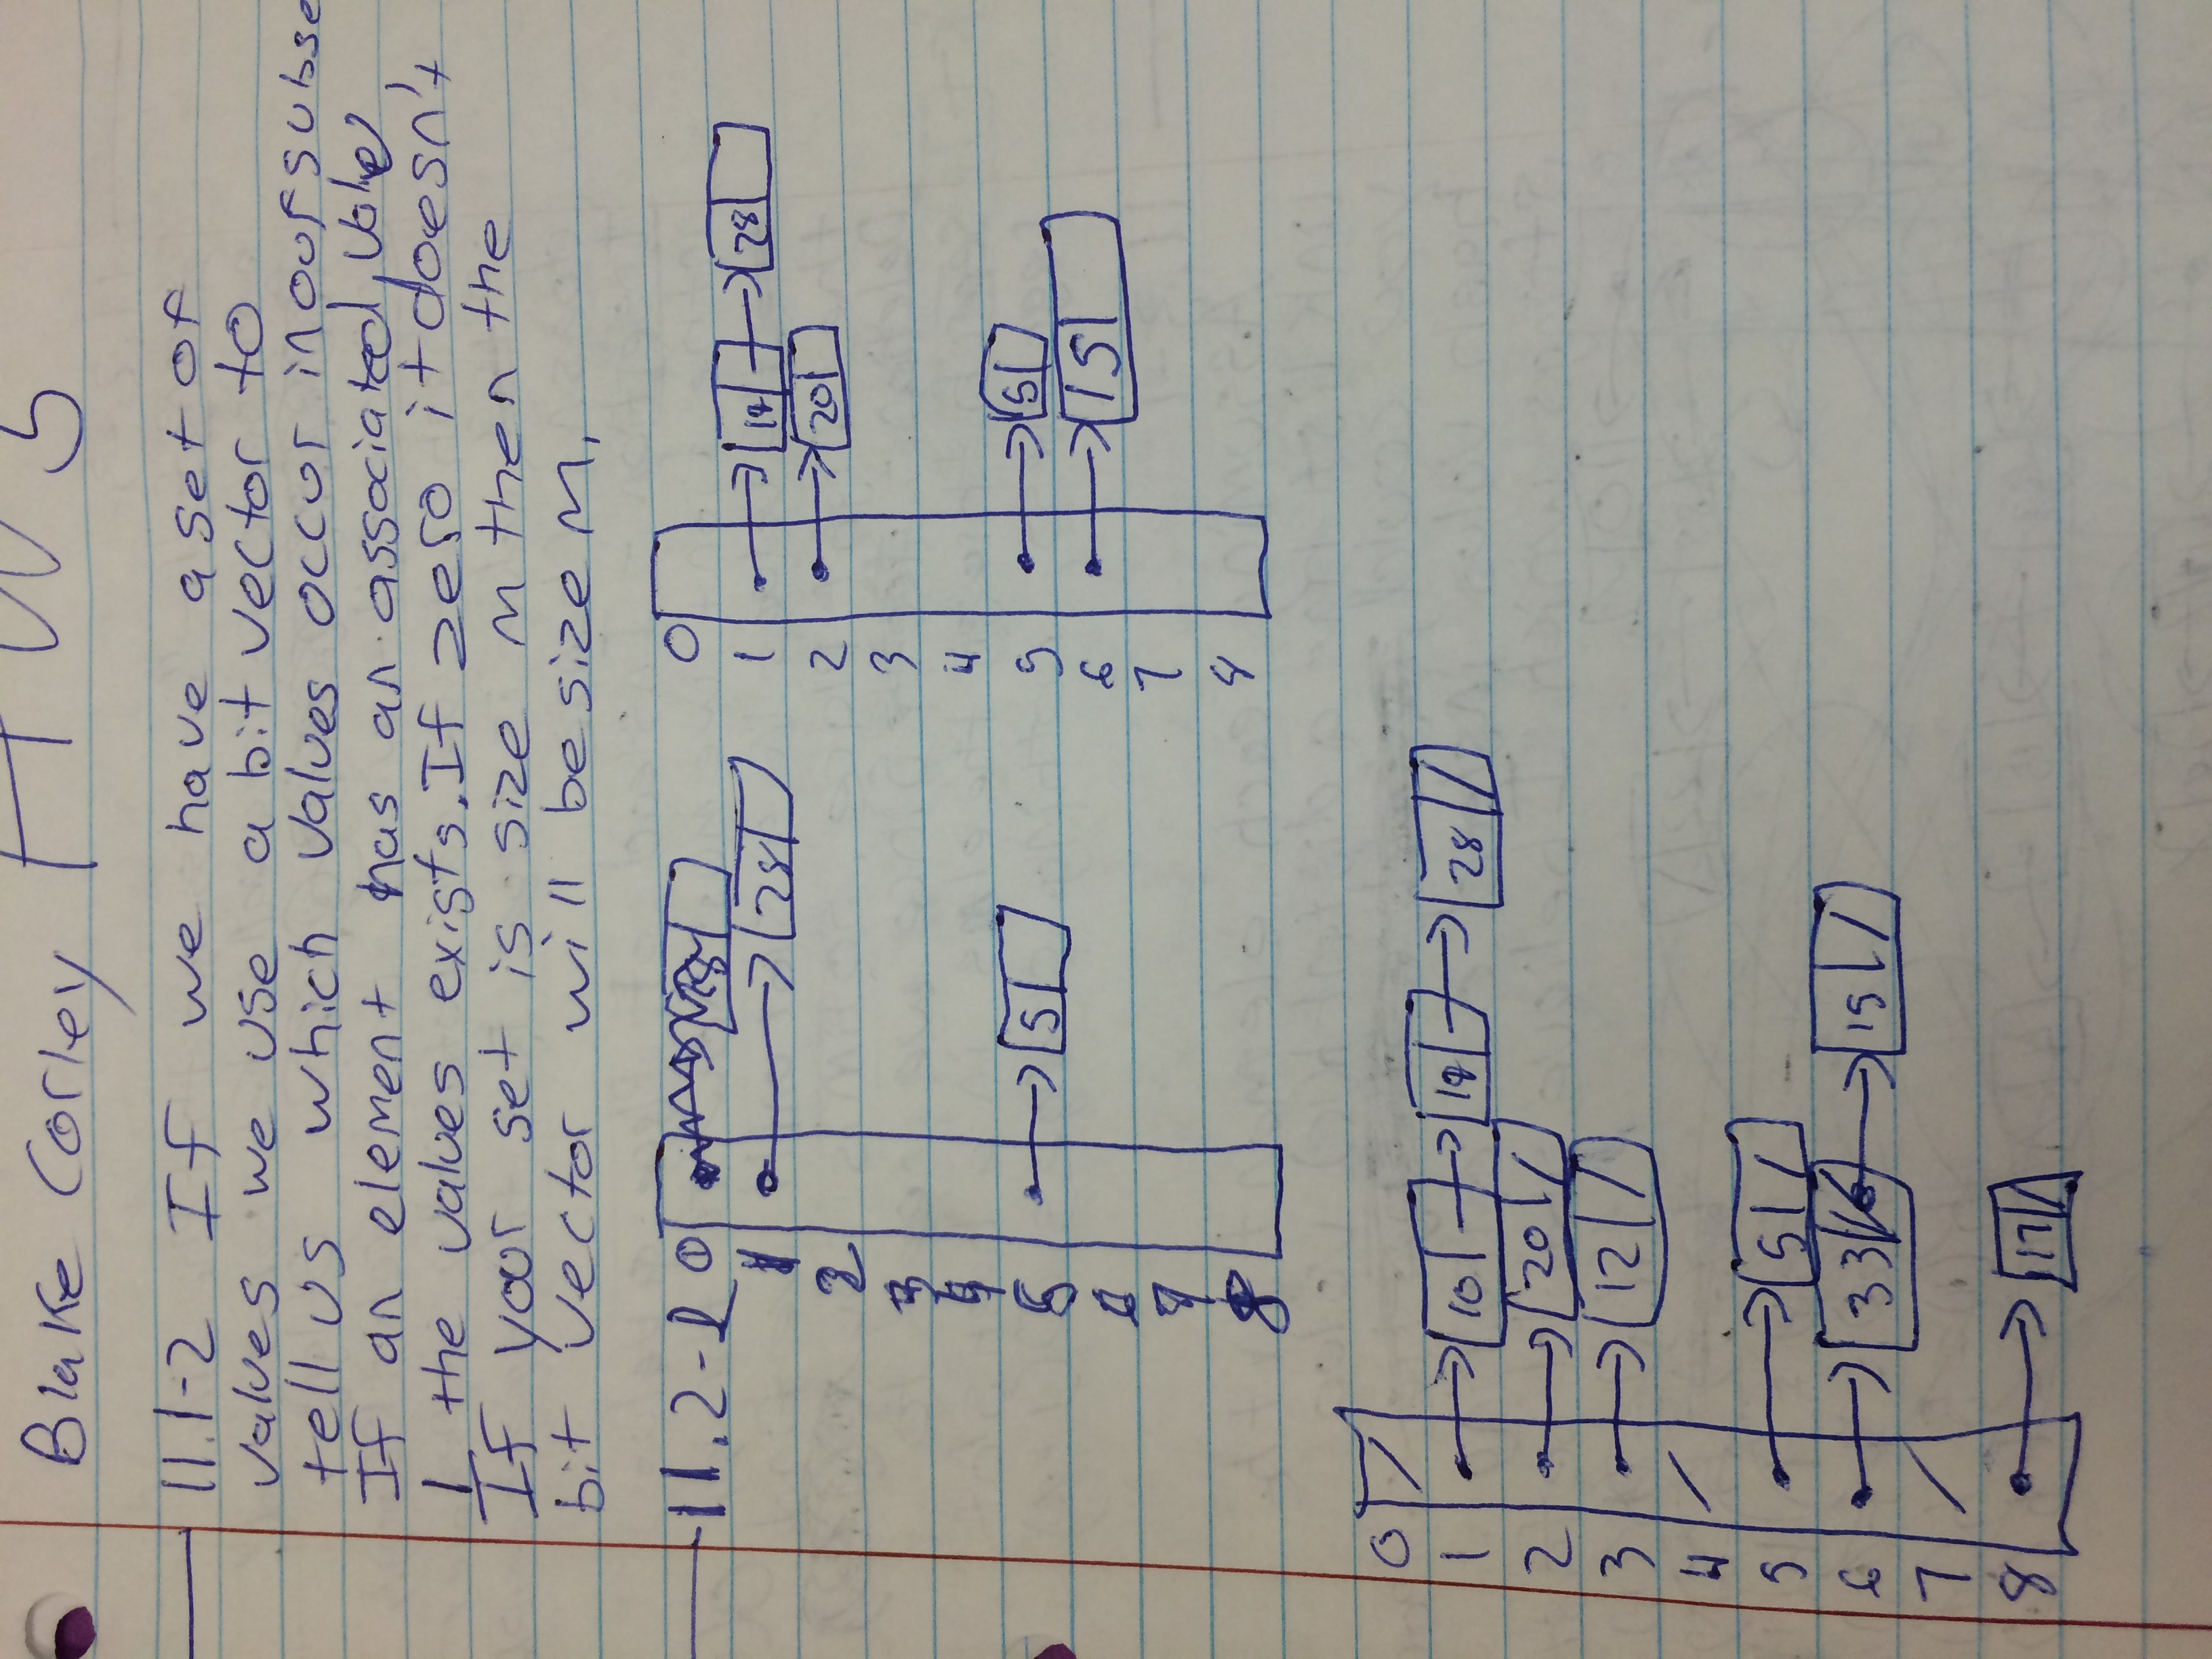 Blake Corley HW 5
11.1-2 If we have a set of
values we use a bit vector to
tell us which values occur in our subse
If an element has an associated value
1 the values exists. If zero it doesn't
If your set is size m then the
bit vector will be size m.
11.2-2
0
1 28
2
3
4
5 5
6
7
8
0
1 19 28
2 20
3
4
5 5
6 15
7
8
0 /
1 10 19 28 /
2 20 /
3 12 /
4 /
5 5 /
6 33 15 /
7 /
8 17 /